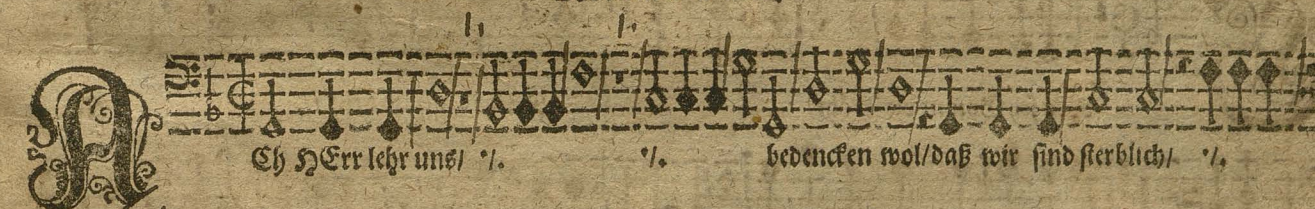 ACh HErr lehr uns/ ·/. ·/. bedencken wol/ daß wir sind sterblich/ ·/.